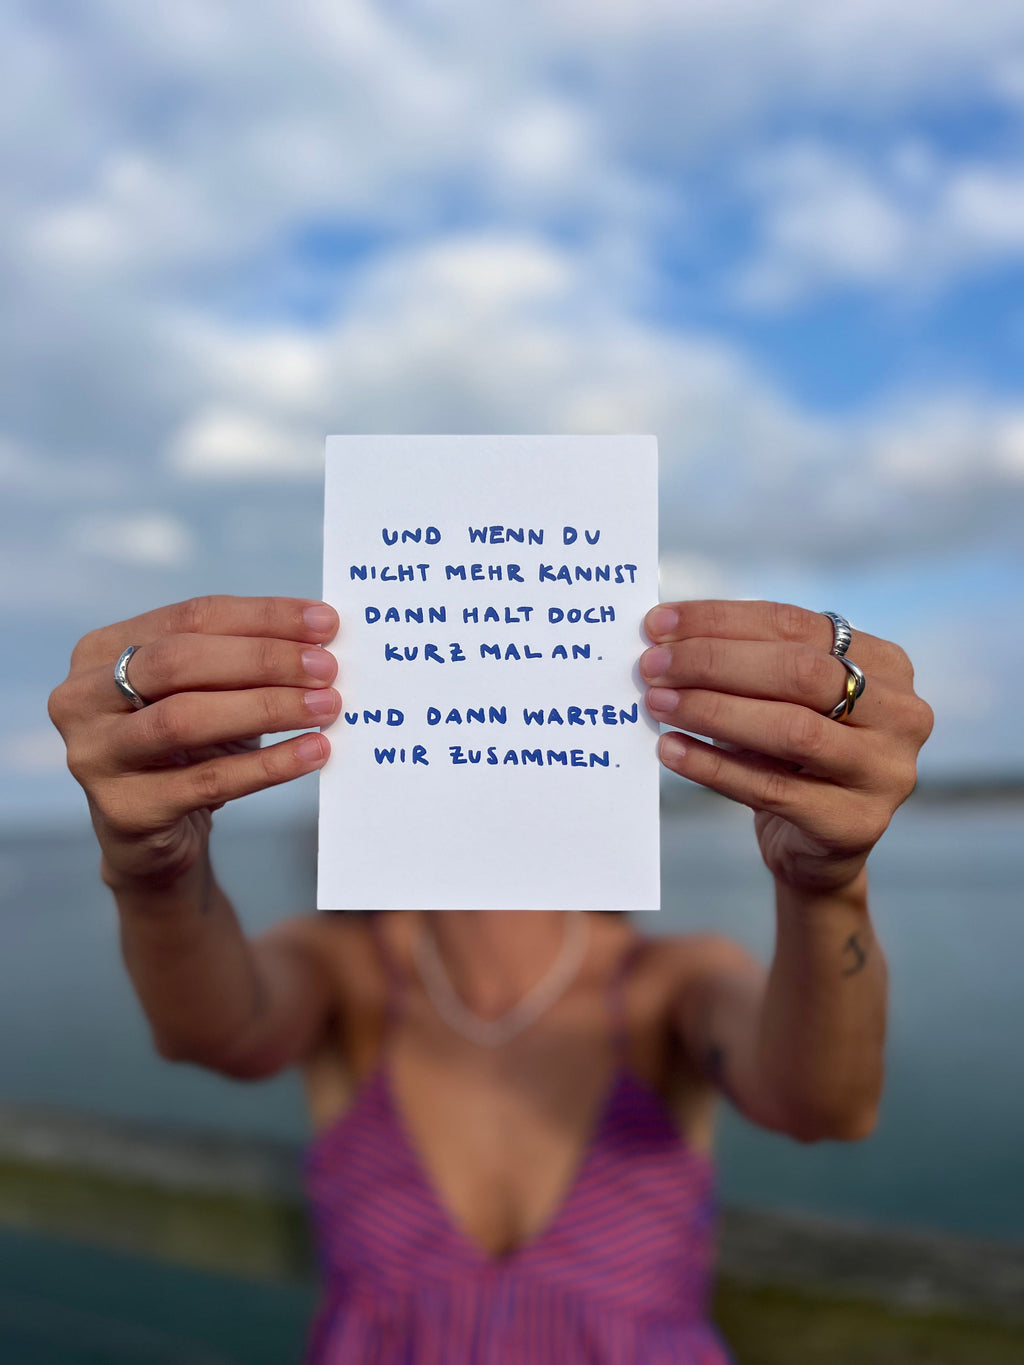 UND WENN DU
NICHT MEHR KANNST
DANN HALT DOCH
KURZ MAL AN.
UND DANN WARTEN
WIR ZUSAMMEN.